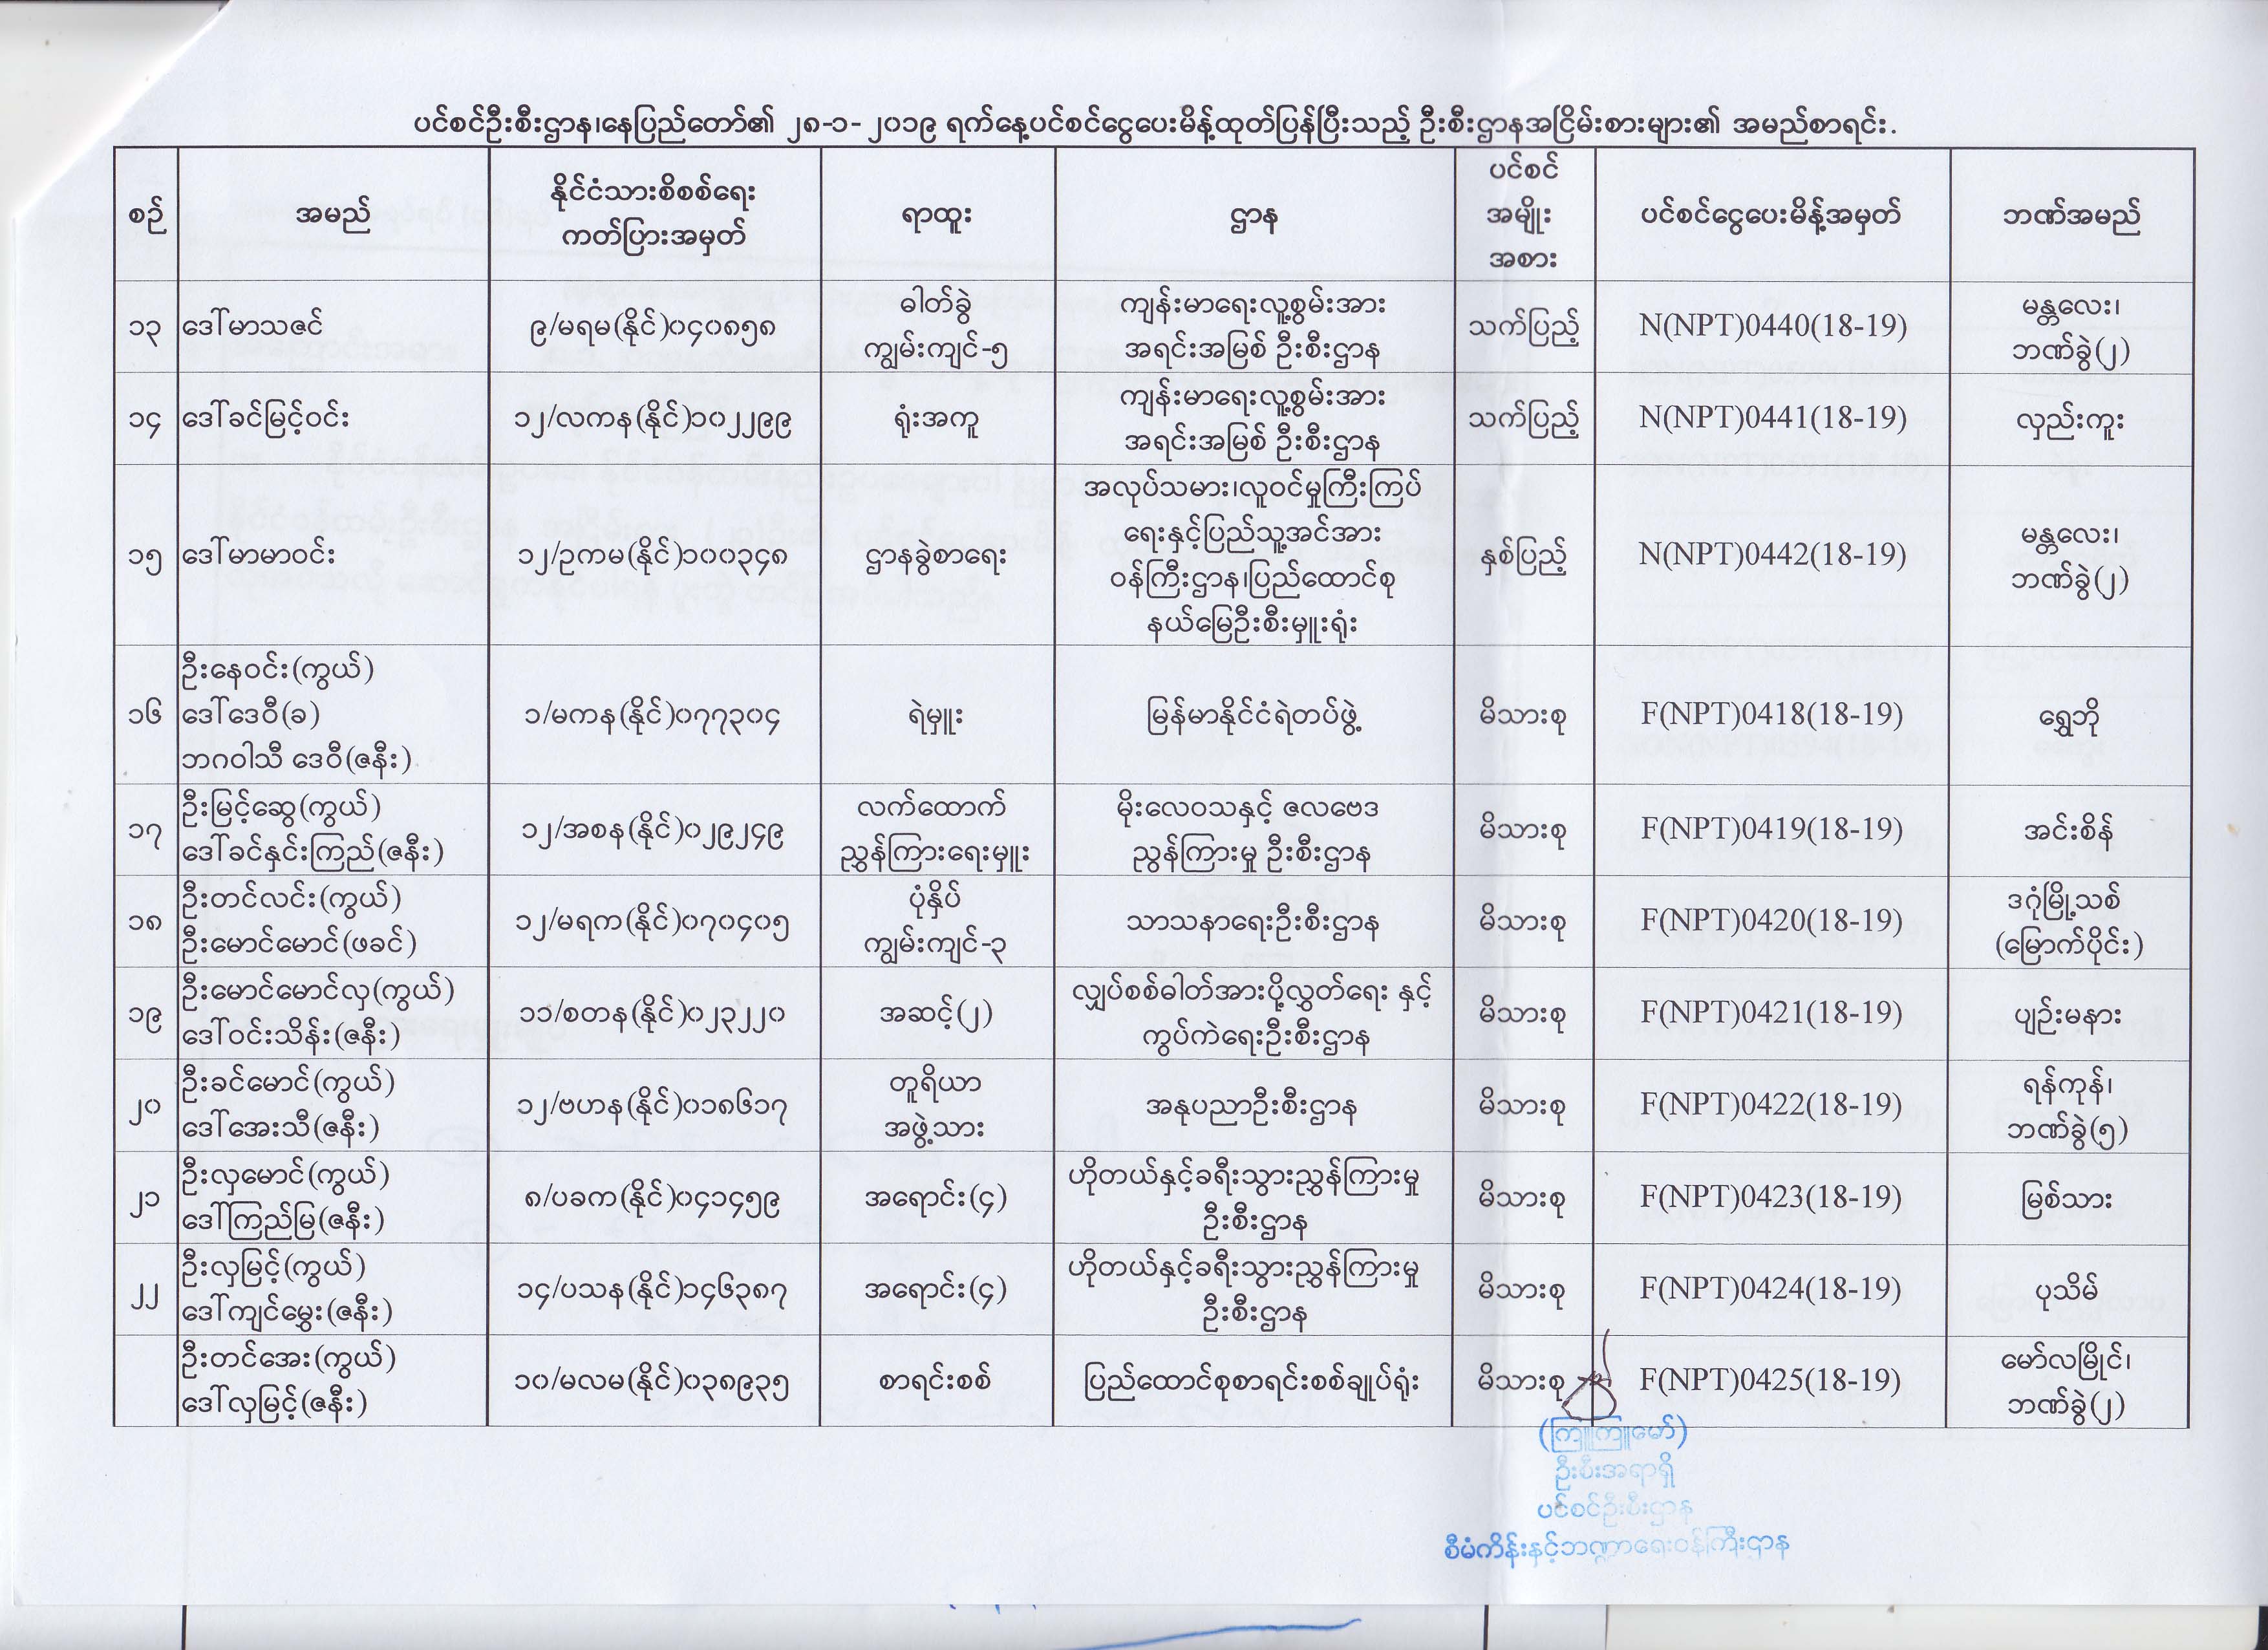 ပင်စင်ဦးစီးဌာန၊နေပြည်တော်၏ ၂၈-၁-၂၀၁၉ ရက်နေ့ပင်စင်ငွေပေးမိန့်ထုတ်ပြန်ပြီးသည့် ဦးစီးဌာနအငြိမ်းစားများ၏ အမည်စာရင်း.
စဉ် အမည် နိုင်ငံသားစိစစ်ရေး ကတ်ပြားအမှတ် ရာထူး ဌာန ပင်စင် အမျိုး အစား ပင်စင်ငွေပေးမိန့်အမှတ် ဘဏ်အမည်
၁၃ ဒေါ်မာသဇင် ၉/မရမ(နိုင်)၀၄၀၈၅၈ ဓါတ်ခွဲ ကျွမ်းကျင်-၅ ကျန်းမာရေးလူ့စွမ်းအား အရင်းအမြစ် ဦးစီးဌာန သက်ပြည့် N(NPT)0440(18-19) မန္တလေး၊ ဘဏ်ခွဲ(၂)
၁၄ ဒေါ်ခင်မြင့်ဝင်း ၁၂/လကန(နိုင်)၁၀၂၂၉၉ ရုံးအကူ ကျန်းမာရေးလူ့စွမ်းအား အရင်းအမြစ် ဦးစီးဌာန သက်ပြည့် N(NPT)0441(18-19) လှည်းကူး
၁၅ ဒေါ်မာမာဝင်း ၁၂/ဥကမ(နိုင်)၁၀၀၃၄၈ ဌာနခွဲစာရေး အလုပ်သမား၊လူဝင်မှုကြီးကြပ် ရေးနှင့်ပြည်သူ့အင်အား ဝန်ကြီးဌာန၊ပြည်ထောင်စု နယ်မြေဦးစီးမှူးရုံး နှစ်ပြည့် N(NPT)0442(18-19) မန္တလေး၊ ဘဏ်ခွဲ(၂)
၁၆ ဦးနေဝင်း(ကွယ်) ဒေါ်ဒေဝီ(ခ) ဘဂဝါသီ ဒေဝီ(ဇနီး) ၁/မကန(နိုင်)၀၇၇၃၀၄ ရဲမှူး မြန်မာနိုင်ငံရဲတပ်ဖွဲ့ မိသားစု F(NPT)0418(18-19) ရွှေဘို
၁၇ ဦးမြင့်ဆွေ(ကွယ်) ဒေါ်ခင်နှင်းကြည်(ဇနီး) ၁၂/အစန(နိုင်)၀၂၉၂၄၉ လက်ထောက် ညွှန်ကြားရေးမှူး မိုးလေဝသနှင့် ဇလဗေဒ ညွန်ကြားမှု ဦးစီးဌာန မိသားစု F(NPT)0419(18-19) အင်းစိန်
၁၈ ဦးတင်လင်း(ကွယ်) ဦးမောင်မောင်(ဖခင်) ၁၂/မရက(နိုင်)၀၇၀၄၀၅ ပုံနှိပ် ကျွမ်းကျင်-၃ သာသနာရေးဦးစီးဌာန မိသားစု F(NPT)0420(18-19) ဒဂုံမြို့သစ် (မြောက်ပိုင်း)
၁၉ ဦးမောင်မောင်လှ(ကွယ်) ဒေါ်ဝင်းသိန်း(ဇနီး) ၁၁/စတန(နိုင်)၀၂၃၂၂၀ အဆင့်(၂) လျှပ်စစ်ဓါတ်အားပို့လွှတ်ရေး နှင့် ကွပ်ကဲရေးဦးစီးဌာန မိသားစု F(NPT)0421(18-19) ပျဉ်းမနား
၂၀ ဦးခင်မောင်(ကွယ်) ဒေါ်အေးသီ(ဇနီး) ၁၂/ဗဟန(နိုင်)၀၁၈၆၁၇ တူရိယာ အဖွဲ့သား အနုပညာဦးစီးဌာန မိသားစု F(NPT)0422(18-19) ရန်ကုန်၊ ဘဏ်ခွဲ(၅)
၂၁ ဦးလှမောင်(ကွယ်) ဒေါ်ကြည်မြ(ဇနီး) ၈/ပခက(နိုင်)၀၄၁၄၅၉ အရောင်း(၄) ဟိုတယ်နှင့်ခရီးသွားညွှန်ကြားမှု ဦးစီးဌာန မိသားစု F(NPT)0423(18-19) မြစ်သား
၂၂ ဦးလှမြင့်(ကွယ်) ဒေါ်ကျင်မွှေး(ဇနီး) ၁၄/ပသန(နိုင်)၁၄၆၃၈၇ အရောင်း(၄) ဟိုတယ်နှင့်ခရီးသွားညွှန်ကြားမှု ဦးစီးဌာန မိသားစု F(NPT)0424(18-19) ပုသိမ်
ဦးတင်အေး(ကွယ်) ဒေါ်လှမြင့်(ဇနီး) ၁၀/မလမ(နိုင်)၀၃၈၉၃၅ စာရင်းစစ် ပြည်ထောင်စုစာရင်းစစ်ချုပ်ရုံး မိသားစု F(NPT)0425(18-19) မော်လမြိုင်၊ ဘဏ်ခွဲ(၂)
(ကြူကြူမော်)
ဦးစီးအရာရှိ
ပင်စင်ဦးစီးဌာန
စီမံကိန်းနှင့်ဘဏ္ဍာရေးဝန်ကြီးဌာန